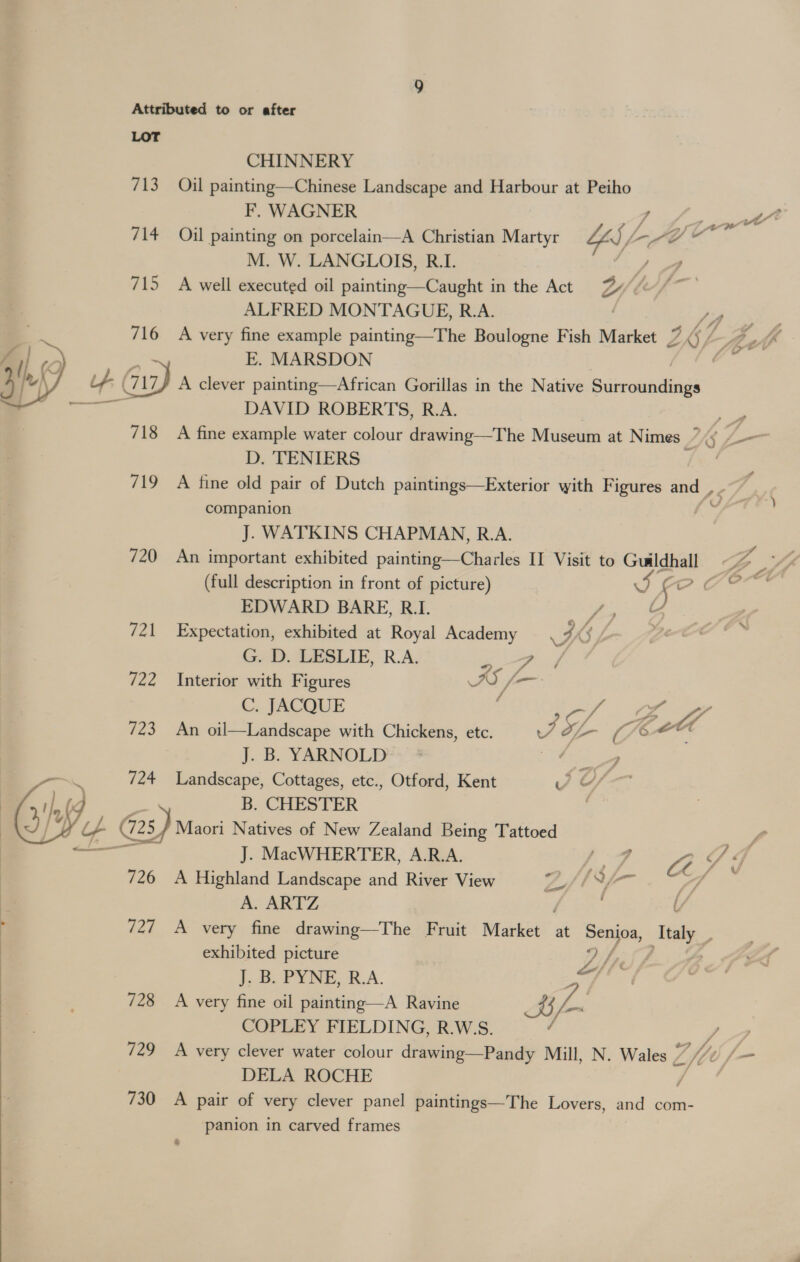 9
Attributed to or after
LOT
CHINNERY
713 Oil painting—Chinese Landscape and Harbour at Peiho
F. WAGNER
714 Oil painting on porcelain—A Christian Martyr
M. W. LANGLOIS, R.I.
715 A well executed oil painting—Caught in the Act
ALFRED MONTAGUE, R.A.
716 A very fine example painting—The Boulogne Fish Market
E. MARSDON
717 A clever painting—African Gorillas in the Native Surroundings
DAVID ROBERTS, R.A.
718 A fine example water colour drawing—The Museum at Nimes
D. TENIERS
719 A fine old pair of Dutch paintings—Exterior with Figures and
companion
J. WATKINS CHAPMAN, R.A.
720 An important exhibited painting—Charles II Visit to Guildhall
(full description in front of picture)
EDWARD BARE, R.I.
721 Expectation, exhibited at Royal Academy
G. D. LESLIE, R.A.
722 Interior with Figures
C. JACQUE
723 An oil—Landscape with Chickens, etc.
J. B. YARNOLD
724 Landscape, Cottages, etc., Otford, Kent
B. CHESTER
725 Maori Natives of New Zealand Being Tattoed
J. MacWHERTER, A.R.A.
726 A Highland Landscape and River View
A. ARTZ
727 A very fine drawing—The Fruit Market at Senjoa, Italy
exhibited picture
J. B. PYNE, R.A.
728 A very fine oil painting—A Ravine
COPLEY FIELDING, R.W.S.
729 A very clever water colour drawing—Pandy Mill, N. Wales
DELA ROCHE
730 A pair of very clever panel paintings—The Lovers, and com-
panion in carved frames